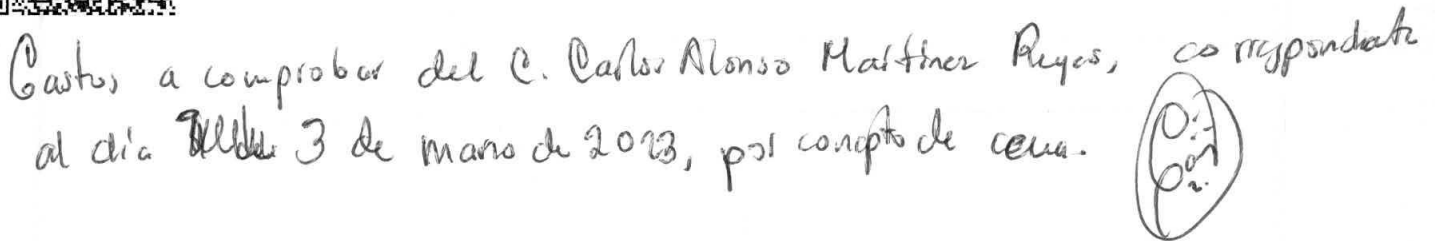 Gastos a comprobar del C. Carlos Alonso Martinez Reyes, correspondiente
al día 3 de marzo de 2023, por concepto de cena.